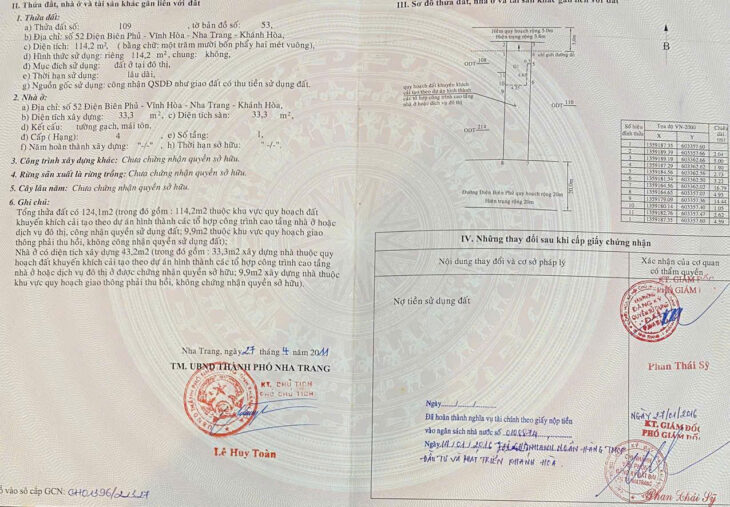 II. Thửa đất, nhà ở và tài sản khác gắn liền với đất
1. Thửa đất:
a) Thửa đất số: 109 , tờ bản đồ số: 53,
b) Địa chỉ: số 52 Điện Biên Phủ - Vĩnh Hòa - Nha Trang - Khánh Hòa,
c) Diện tích: 114,2 m², ( bằng chữ: một trăm mười bốn phẩy hai mét vuông),
d) Hình thức sử dụng: riêng 114,2 m², chung: không,
đ) Mục đích sử dụng: đất ở tại đô thị,
e) Thời hạn sử dụng: lâu dài,
g) Nguồn gốc sử dụng: công nhận QSDĐ như giao đất có thu tiền sử dụng đất.
2. Nhà ở:
a) Địa chỉ: số 52 Điện Biên Phủ - Vĩnh Hòa - Nha Trang - Khánh Hòa,
b) Diện tích xây dựng: 33,3 m², c) Diện tích sàn: 33,3 m²,
d) Kết cấu: tường gạch, mái tôn,
đ) Cấp ( Hạng): 4 , e) Số tầng: 1,
f) Năm hoàn thành xây dựng: "-/-" , h) Thời hạn sở hữu: "-/-".
3. Công trình xây dựng khác: Chưa chứng nhận quyền sở hữu.
4. Rừng sản xuất là rừng trồng: Chưa chứng nhận quyền sở hữu.
5. Cây lâu năm: Chưa chứng nhận quyền sở hữu.
6. Ghi chú:
Tổng thửa đất có 124,1m2 (trong đó gồm : 114,2m2 thuộc khu vực quy hoạch đất
khuyến khích cải tạo theo dự án hình thành các tổ hợp công trình cao tầng nhà ở hoặc
dịch vụ đô thị, công nhận quyền sử dụng đất; 9,9m2 thuộc khu vực quy hoạch giao
thông phải thu hồi, không công nhận quyền sử dụng đất);
Nhà ở có diện tích xây dựng 43,2m2 (trong đó gồm : 33,3m2 xây dựng nhà thuộc quy
hoạch đất khuyến khích cải tạo theo dự án hình thành các tổ hợp công trình cao tầng
nhà ở hoặc dịch vụ đô thị ở được chứng nhận quyền sở hữu; 9,9m2 xây dựng nhà thuộc
khu vực quy hoạch giao thông phải thu hồi, không chứng nhận quyền sở hữu).
Nha Trang, ngày 27 tháng 4 năm 2011
TM. UBND THÀNH PHỐ NHA TRANG
KT. CHỦ TỊCH
PHÓ CHỦ TỊCH
Lê Huy Toàn
Số vào sổ cấp GCN:
III. Sơ đồ thửa đất, nhà ở và tài sản khác gắn liền với đất
Hẻm quy hoạch rộng 5.0m
B
chỉ giới đường đỏ
ODT 108
quy hoạch đất khuyến khích
cải tạo theo dự án hình thành
các tổ hợp công trình cao tầng
nhà ở hoặc dịch vụ đô thị
ODT 110
ODT 214
Đường Điện Biên Phủ quy hoạch rộng 20m
Hiện trạng 20m
Số hiệu đỉnh thửa Tọa độ VN-2000 Chiều dài (m)
X Y
IV. Những thay đổi sau khi cấp giấy chứng nhận
Nội dung thay đổi và cơ sở pháp lý
Xác nhận của cơ quan
có thẩm quyền
Nợ tiền sử dụng đất
KT. GIÁM ĐỐC
PHÓ GIÁM
Phan Thái Sỹ
Ngày / /
Đã hoàn thành nghĩa vụ tài chính theo giấy nộp tiền
vào ngân sách nhà nước số
Ngày 18/01/2016 CHI NHÁNH NGÂN HÀNG TMCP
ĐẦU TƯ VÀ PHÁT TRIỂN KHÁNH HÒA.
NGÀY 27/01/2016
KT. GIÁM ĐỐC
PHÓ GIÁM ĐỐC
Phan Thái Sỹ